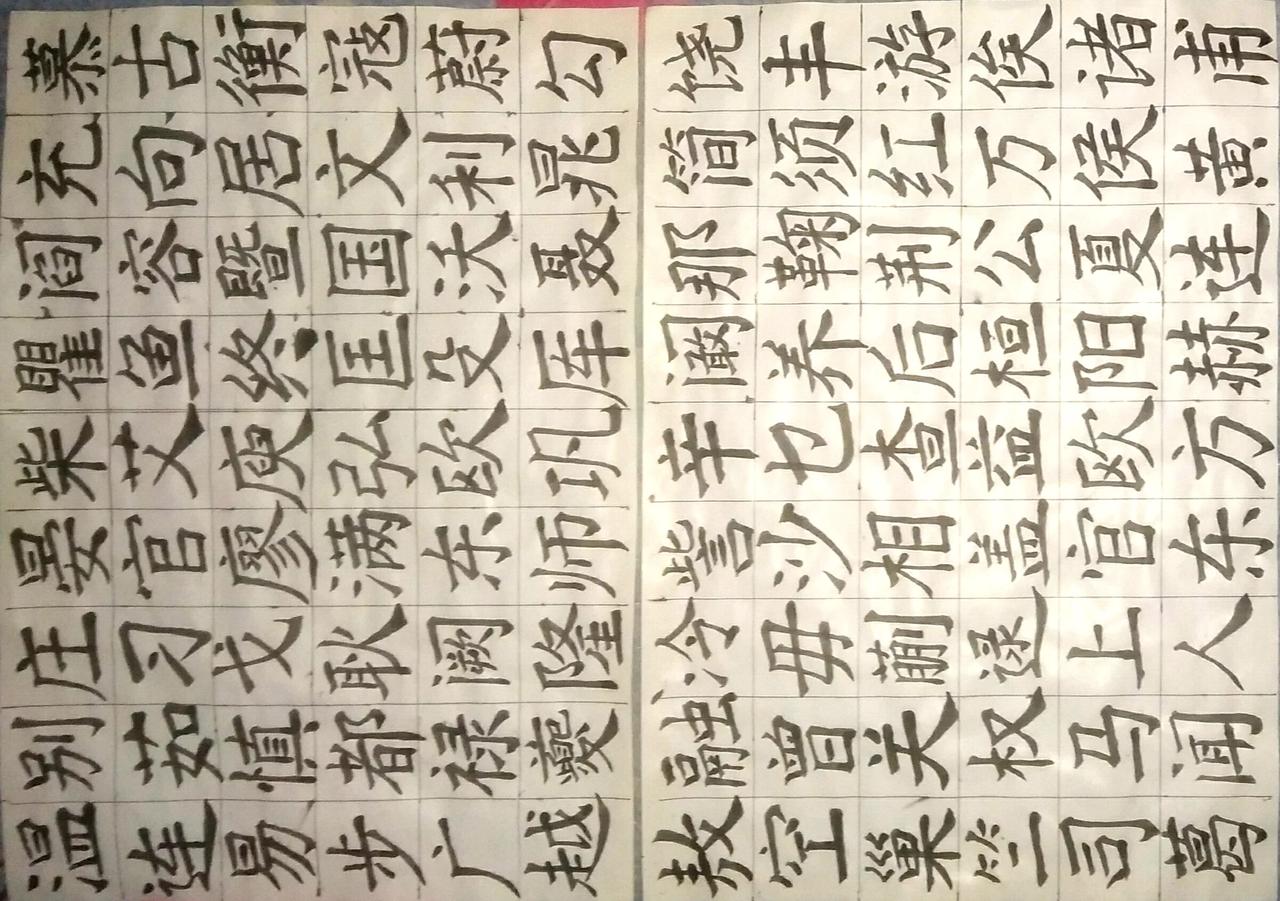 温别庄晏柴瞿阎充慕
连茹习宦艾鱼容向古
易慎戈廖庾终暨居衡
步都耿满弘匡国文寇
广禄阙东欧殳沃利蔚
越夔隆师巩厍聂晁勾
敖融冷訾辛阚那简饶
空曾毋沙乜养鞠须丰
巢关蒯相查后荆红游
竺权逯盖益桓公万俟
司马上官欧阳夏侯诸
葛闻人东方赫连黄甫